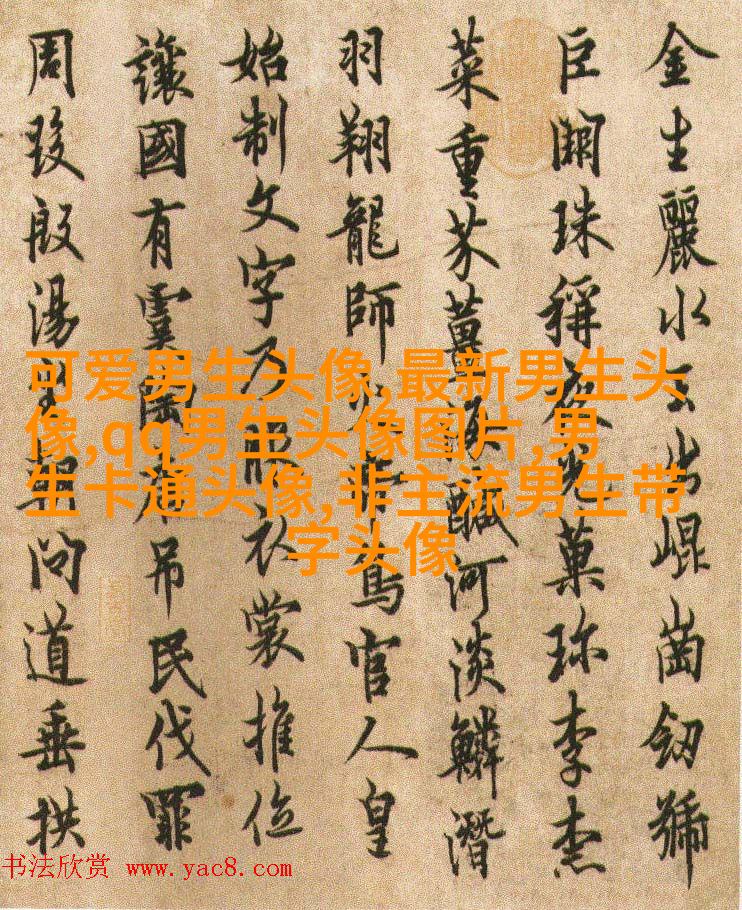 金生麗水玉出崐崗劒號
巨闕珠稱夜光菓珎李柰
菜重芥薑海醎河淡鱗潛
羽翔龍師火帝鳥官人皇
始制文字乃服衣裳推位
讓國有虞陶唐吊民伐罪
周發殷湯坐朝問道垂拱
可爱男生头像,最新男生头
像,qq男生头像图片,男
生卡通头像,非主流男生带
字头像
书法欣赏 www.yac8.com